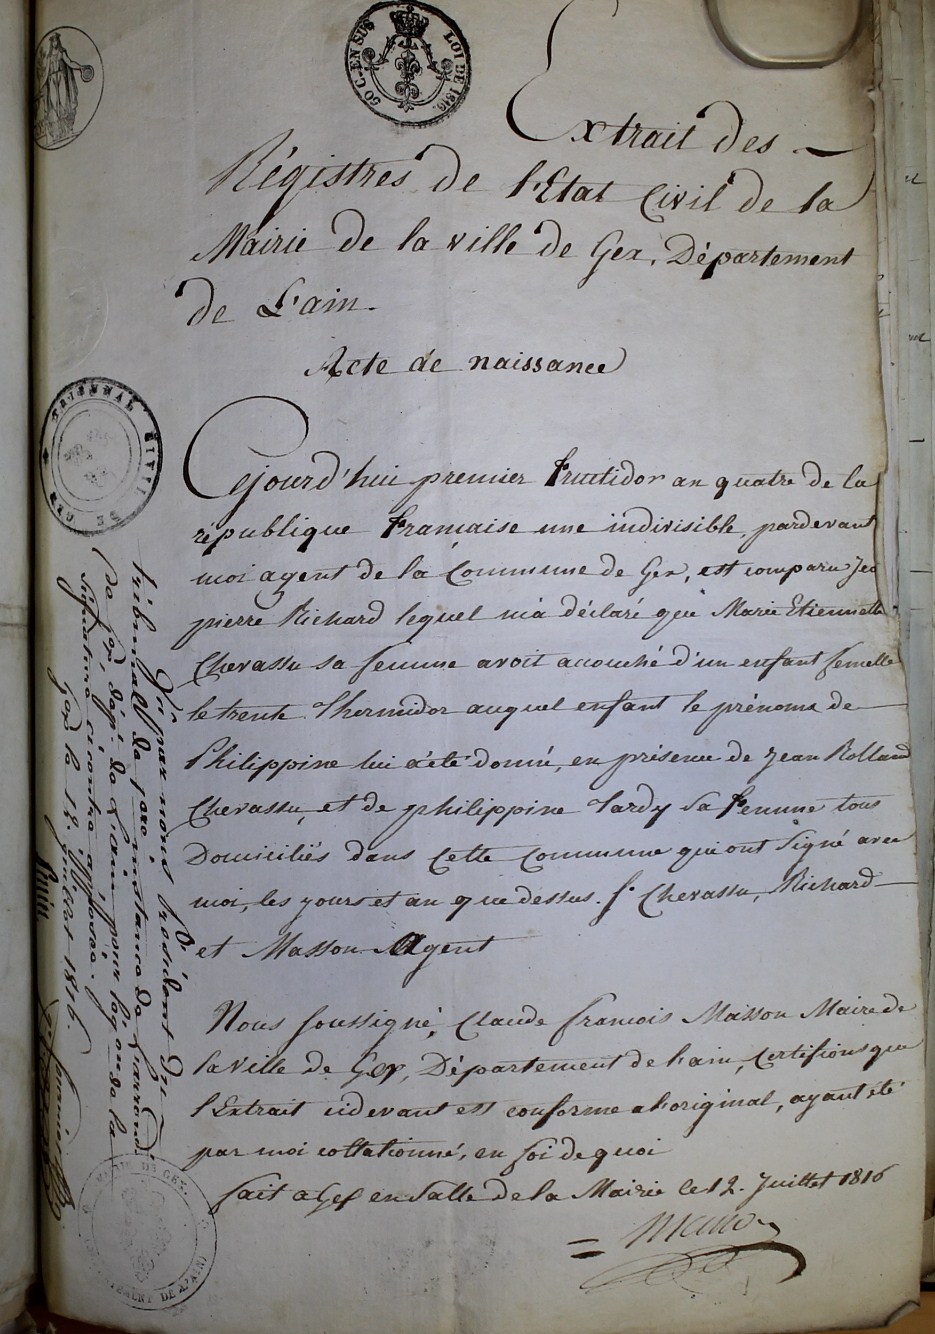 50 C. EN SUS LOI DE 1816.
Extrait des
Régistres de l'Etat Civil de la
Mairie de la ville de Gex, Département
de L'ain.
Acte de naissance
Cejourd'hui premier fructidor an quatre de la
république française une indivisible, pardevant
moi agent de la Commune de Gex, est comparu Jea
pierre Richard lequel m'a déclaré que Marie Etiennette
Chevassu sa femme avoit acouché d'un enfant femelle
le trente Thermidor auquel enfant le prénoms de
Philippine lui a été donné, en présence de Jean Rolland
Chevassu, et de philippine Tardy Sa femme tous
Domiciliés dans Cette Commune qui ont Signé avec
moi, les jours et an que dessus. f. Chevassu, Richard
et Masson Agent
Nous soussigné, Claude françois Masson Maire de
la ville de Gex, Département de l'ain, Certifions que
l'Extrait cidevant est conforme a l'original, ayant été
par moi collationné, en foi de quoi
fait a Gex en Salle de la Mairie le 12. Juillet 1816
TRIBUNAL CIVIL DE GEX
Vû par nous président du
tribunal de 1ere instance de l'arrond.
de Gex, dépt. de L'ain, pour légon. de la
signature et contre apposée.
Gex le 12. juillet 1816.
MAIRIE DE GEX.
DEPARTEMENT DE L'AIN